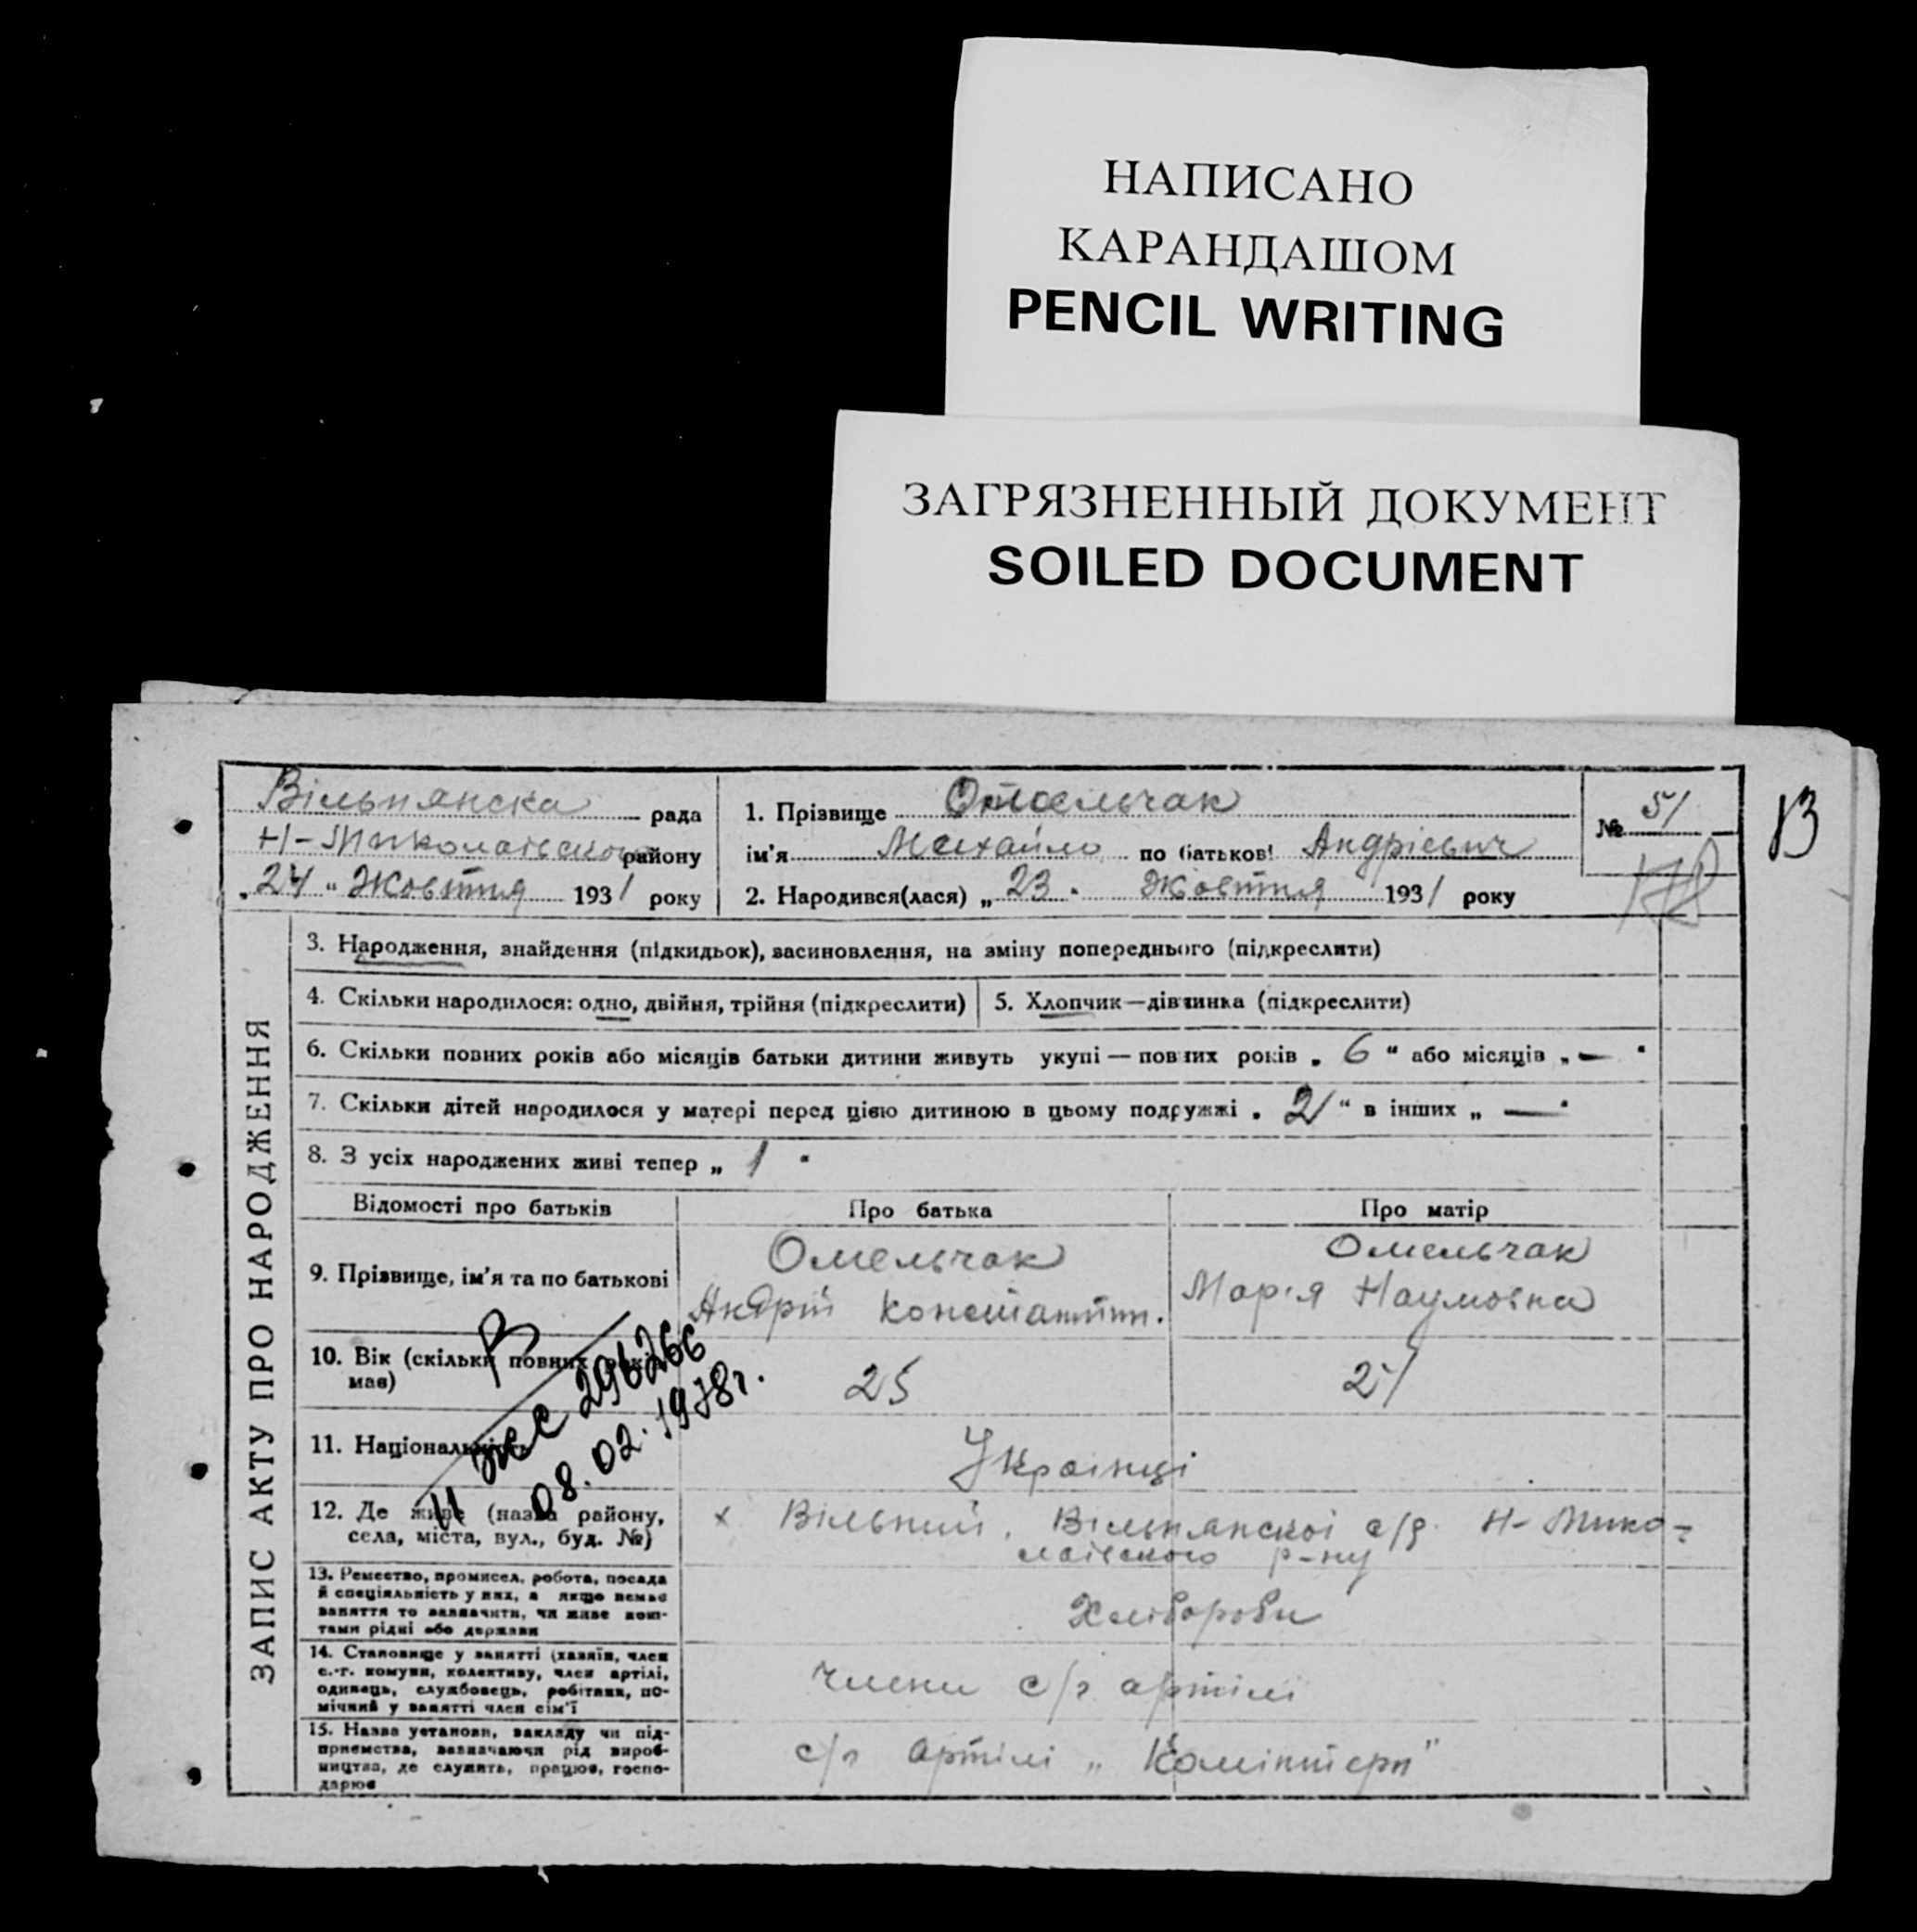 НАПИСАНО
КАРАНДАШОМ
PENCIL WRITING
ЗАГРЯЗНЕННЫЙ ДОКУМЕНТ
SOILED DOCUMENT
13
Вільнянска рада
Н-Миколаівского району
„24“ Жовтня 1931 року
1. Прізвище Омельчак
ім'я Михайло по батькові Андрієвич
2. Народився(лася) „23“ Жовтня 1931 року
№ 51
178
ЗАПИС АКТУ ПРО НАРОДЖЕННЯ
3. Народження, знайдення (підкидьок), засиновлення, на зміну попереднього (підкреслити)
4. Скільки народилося: одно, двійня, трійня (підкреслити)
5. Хлопчик—дівчинка (підкреслити)
6. Скільки повних років або місяців батьки дитини живуть укупі — повних років „6“ або місяців „—“
7. Скільки дітей народилося у матері перед цією дитиною в цьому подружжі „2“ в інших „—“
8. З усіх народжених живі тепер „1“
Відомості про батьків Про батька Про матір
9. Прізвище, ім'я та по батькові
Омельчак
Андрій Константин.
Омельчак
Марія Наумовна
10. Вік (скільки повних років має)
25
21
11. Національність
Українці
12. Де живе (назва району,
села, міста, вул., буд. №)
х Вільний, Вільнянскоі с/р. Н-Мико-
лаівского р-ну
13. Ремество, промисел, робота, посада
й спеціяльність у них, а якщо немає
заняття то зазначити, чи живе кош-
тами рідні або держави
Хлібороби
14. Становище у занятті (хазяїн, член
с.-г. комуни, колективу, член артілі,
одинець, службовець, робітник, по-
мічний у занятті член сім'ї
члени с/г артілі
15. Назва установи, закладу чи під-
приємства, зазначаючи рід вироб-
ництва, де служить, працює, госпо-
дарює
с/г артілі „Комінтерн"
296266
08.02.1978г.